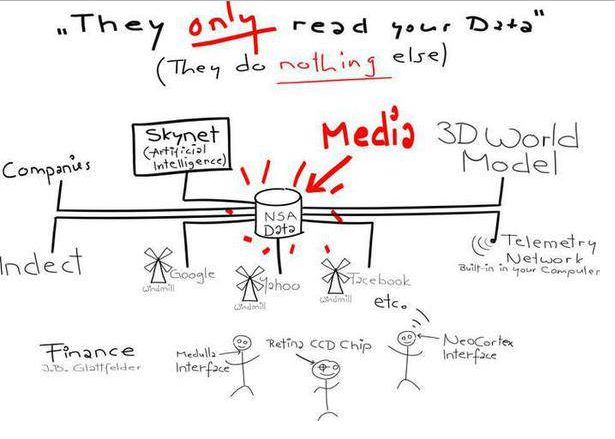 „They only read your Data"
(They do nothing else)
Media
Skynet
(Artificial
Intelligence)
3D World
Model
Companies
NSA
Data
Indect
Google
windmill
Yahoo
windmill
Facebook
windmill
etc.
Telemetry
Network
Built-in in your Computer
Finance
J.B. Glattfelder
Medulla
Interface
Retina CCD Chip
NeoCortex
Interface